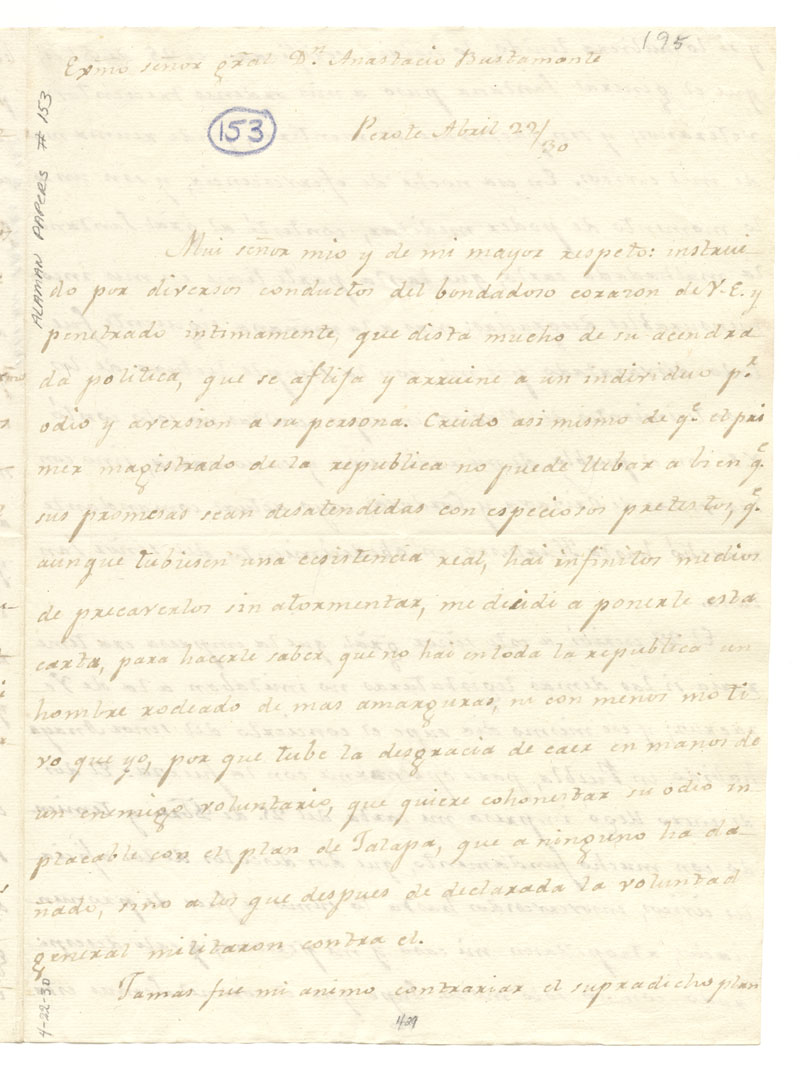 195
Exmo señor gral Dn. Anastacio Bustamante
153
Perote Abril 22/30
ALAMAN PAPERS # 153
Mui señor mio y de mi mayor respeto: instrue-
do por diversos conductos del bondadoso corazon de V.E. y
penetrado intimamente, que dista mucho de su acendra
da politica, que se aflija y arruine a un individuo pr.
odio y aversion a su persona. Creido asi mismo de qe. el pri
mer magistrado de la republica no puede llebar a bien qe.
sus promesas sean desatendidas con especiosos pretestos, qe.
aunque tubiesen una ecsistencia real, hai infinitos medios
de precaverlos sin atormentar, me decidi a ponerle esta
carta, para hacerle saber que no hai en toda la republica un
hombre rodeado de mas amarguras, ni con menos moti
vo que yo, por que tube la desgracia de caer en manos de
un enemigo voluntario, que quiere cohonestar su odio in
placable con el plan de Jalapa, que a ninguno ha da-
ñado, sino a los que despues de declarada la voluntad
general militaron contra el.
Jamas fue mi animo contrariar el supradicho plan
4-22-30